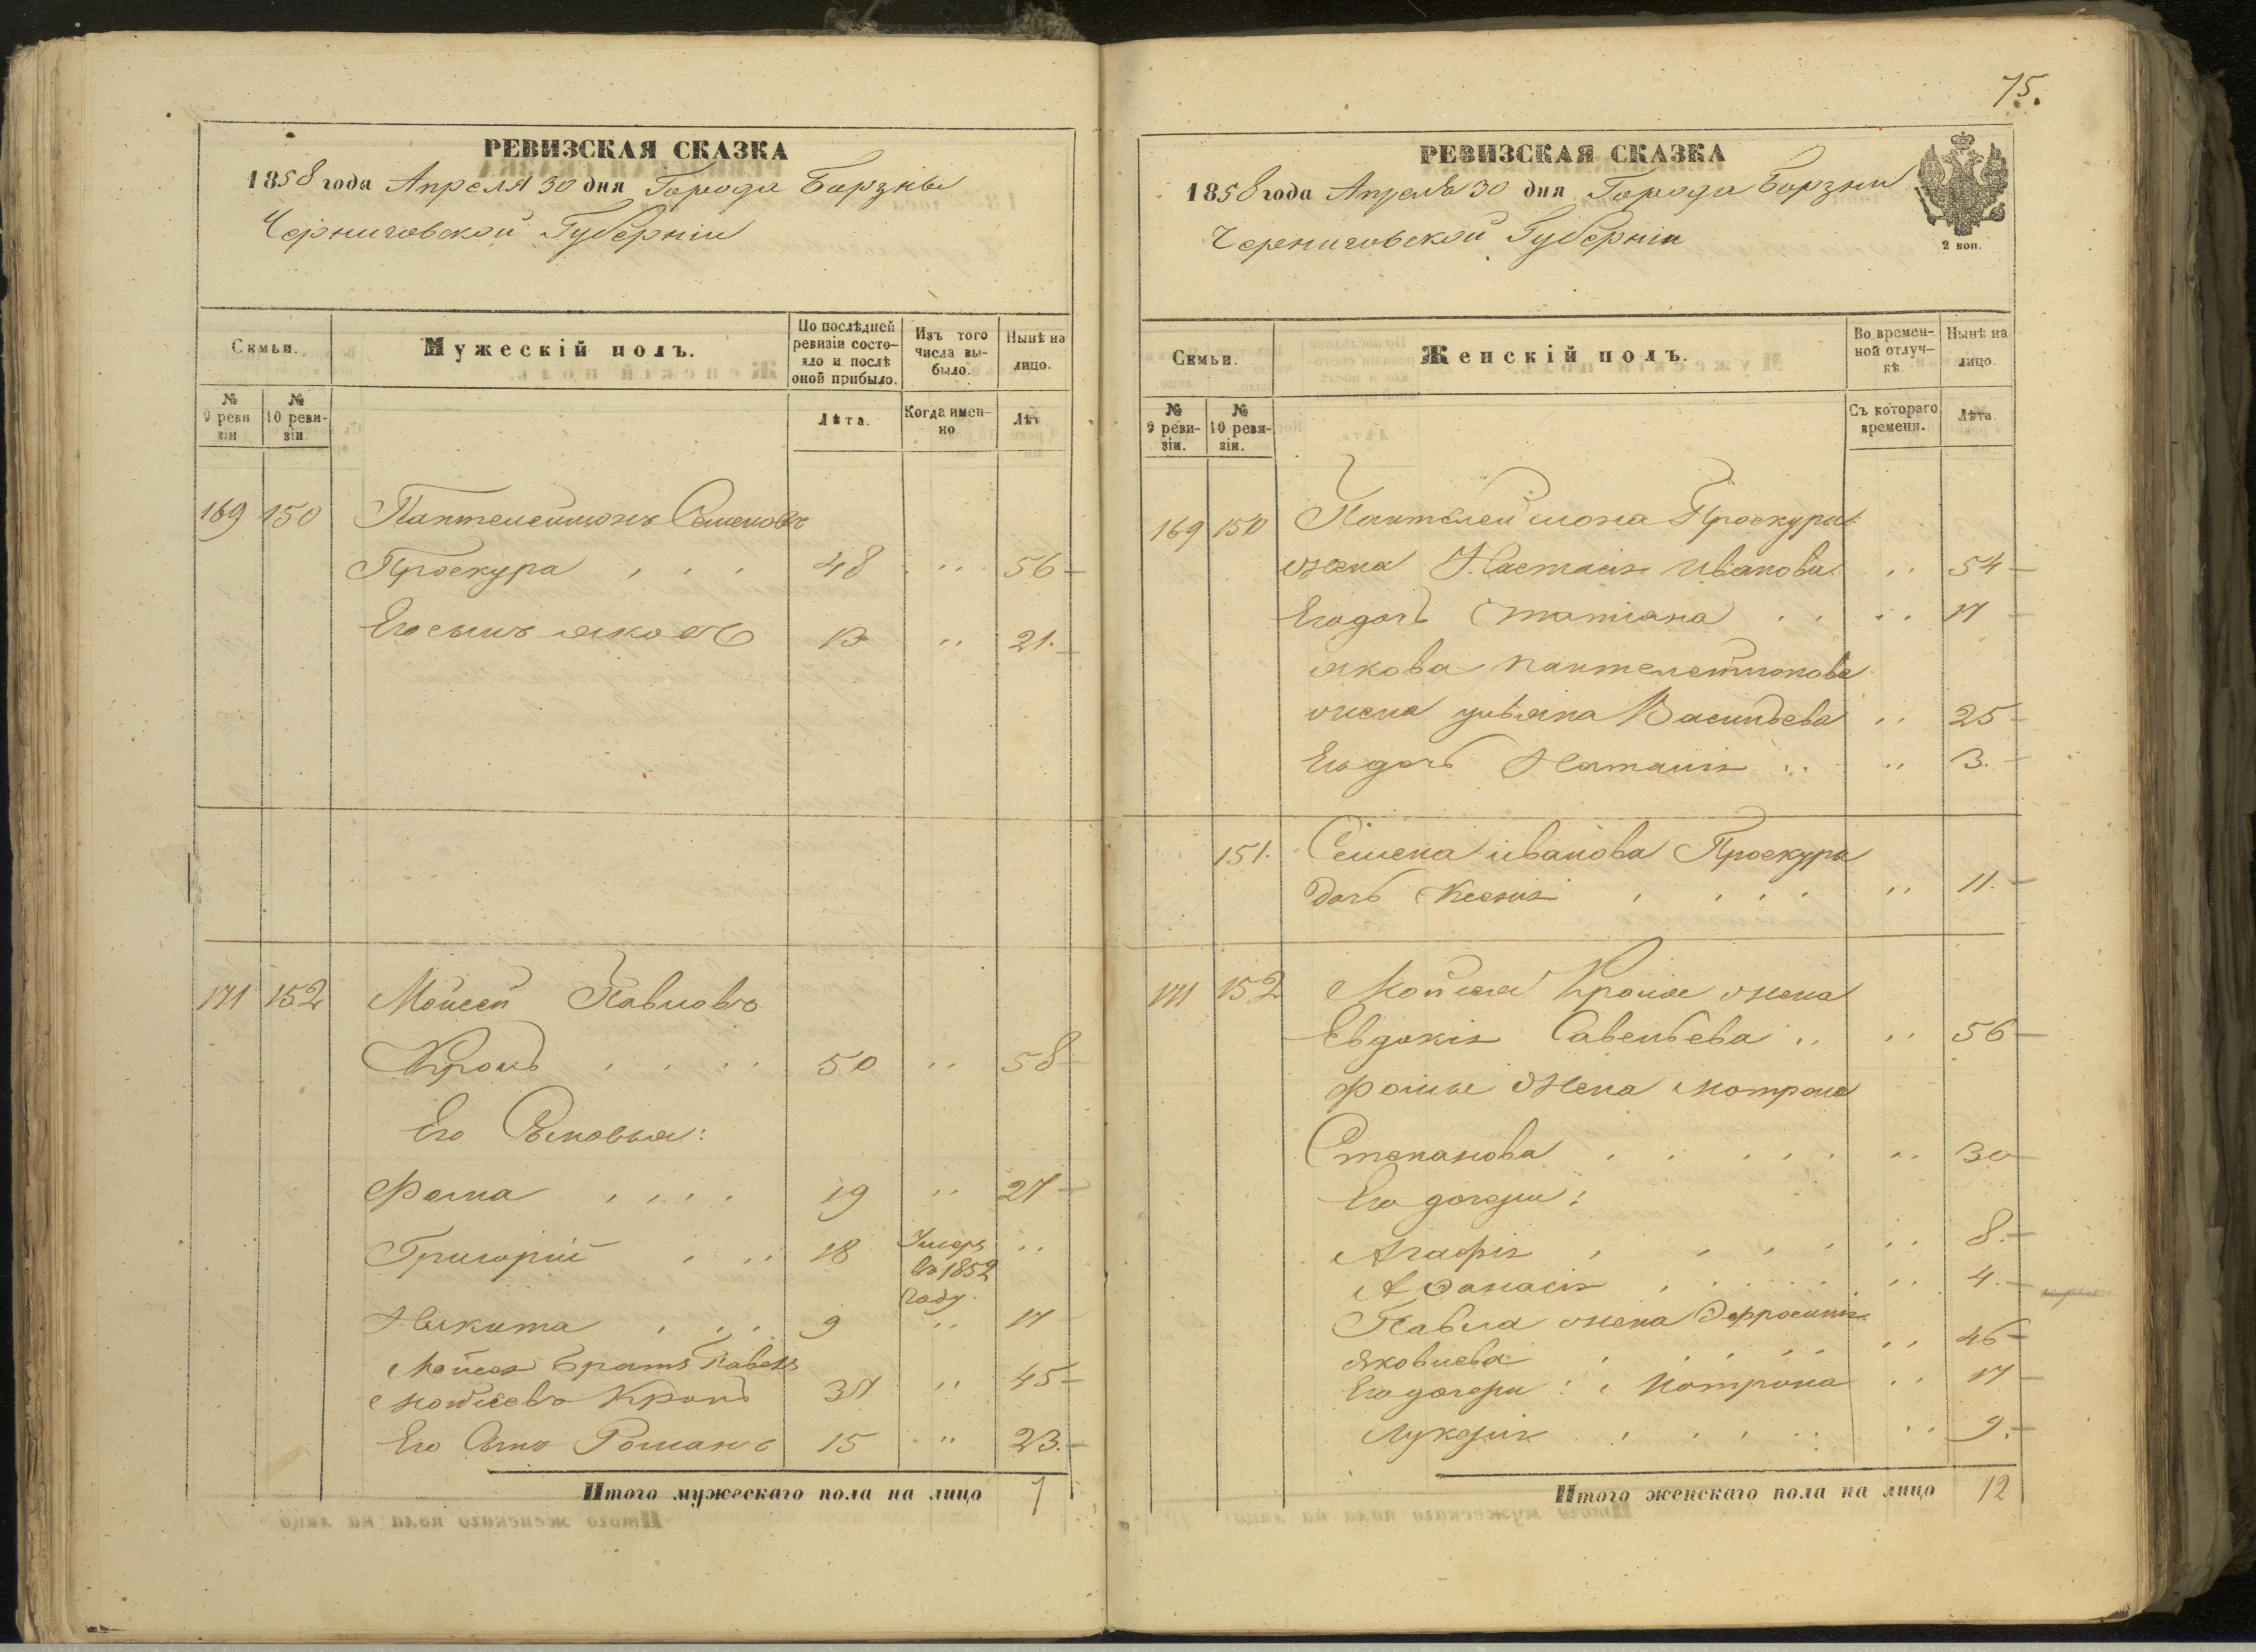 РЕВИЗСКАЯ СКАЗКА
1858 года Апреля 30 дня Города Борзны
Черниговской Губерніи
Семьи.
Мужескій полъ.
По послѣдней ревизіи состояло и послѣ оной прибыло.
Изъ того числа выбыло.
Нынѣ на лицо.
№ 9 ревизіи
№ 10 ревизіи.
Лѣта.
Когда именно
Лѣт
169 150 Пантелеймонъ Семеновъ
Проскура 48 " 56
Его сынъ яковъ 13 " 21.
171 152 Мойсей Павловъ
Кроль 50 " 58
Его Сыновья:
Фома 19 " 27
Григорій 18 Умеръ "
въ 1852
году.
Никита 9 " 17
Мойсея Братъ Павелъ
37 " 45
Его Сынъ Романъ 15 " 23.
Итого мужескаго пола на лицо 7
75.
РЕВИЗСКАЯ СКАЗКА
1858 года Апреля 30 дня Города Борзни
Черниговской Губерніи
2 коп.
Семьи.
Женскій полъ.
Во временной отлучкѣ.
Нынѣ на лицо.
№ 9 ревизіи.
№ 10 ревизіи.
Съ котораго времени.
Лѣта.
169 150 Пантелеймона Проскуры
жена Настасія Иванова " 54
Его дочь Татіана " 17
якова Пантелеймонова
жена ульяна Васильева " 25
Его дочь Наталія " 3.
151. Семена иванова Проскуры
дочь Ксенія " 11.
171 152 Мойсея Кроля жена
Евдокія Савельева " 56
Фомы Жена мотрона
Степанова " 30
Его дочери:
Агафія " 8.
Афанасія " 4.
Павла жена Эфросинія
яковлева " 46
Его дочери: Мотрона " 17
Лукерія " 9.
Итого женскаго пола на лицо 12